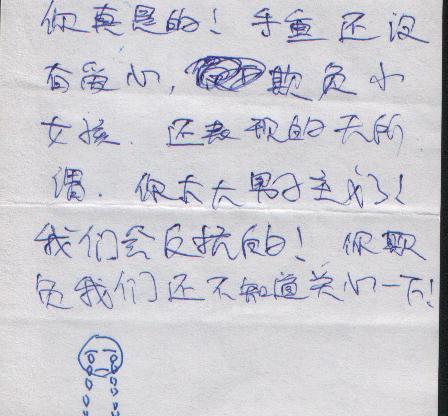 你真是的！手重还没
有爱心，欺负小
女孩．还表现的无所
谓．你太大男子主义了！
我们会反抗的！你欺
负我们还不知道关心一下！